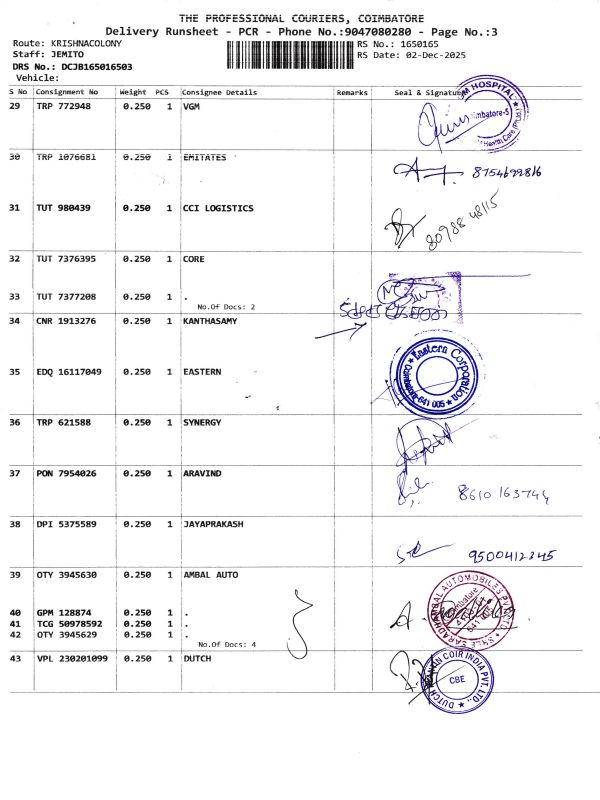 THE PROFESSIONAL COURIERS, COIMBATORE
Delivery Runsheet - PCR - Phone No.:9047080280 - Page No.:3
Route: KRISHNACOLONY RS No.: 1650165
Staff: JEMITO RS Date: 02-Dec-2025
DRS No.: DCJB165016503
Vehicle:
S No Consignment No Weight PCS Consignee Details Remarks Seal & Signature
29 TRP 772948 0.250 1 VGM
HOSPITAL
Coimbatore-5
Health Care (P) Ltd
30 TRP 1076681 0.250 1 EMITATES
8754692816
31 TUT 980439 0.250 1 CCI LOGISTICS
80988 48115
32 TUT 7376395 0.250 1 CORE
33 TUT 7377208 0.250 1 .
No.Of Docs: 2
34 CNR 1913276 0.250 1 KANTHASAMY
35 EDQ 16117049 0.250 1 EASTERN
Eastern Corporation
Coimbatore-641 005
36 TRP 621588 0.250 1 SYNERGY
37 PON 7954026 0.250 1 ARAVIND
8610 163744
38 DPI 5375589 0.250 1 JAYAPRAKASH
9500412345
39 OTY 3945630 0.250 1 AMBAL AUTO
SARADHAMBAL AUTOMOBILES PVT LTD
Coimbatore
641 005
40 GPM 128874 0.250 1 .
41 TCG 50978592 0.250 1 .
42 OTY 3945629 0.250 1 .
No.Of Docs: 4
43 VPL 230201099 0.250 1 DUTCH
COIR INDIA PVT. LTD.,
DUTCH
CBE